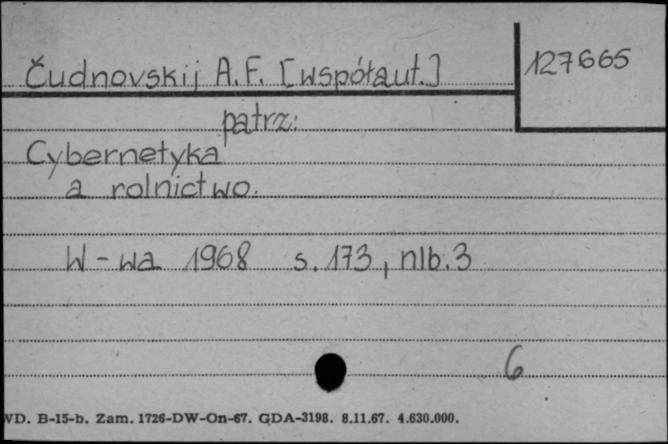 Čudnovskij A.F. [współaut.]
127665
patrz:
Cybernetyka
a rolnictwo.
W-wa 1968 s. 173, nlb. 3
6
WD. B-15-b. Zam. 1726-DW-On-67. GDA-3198. 8.11.67. 4.630.000.